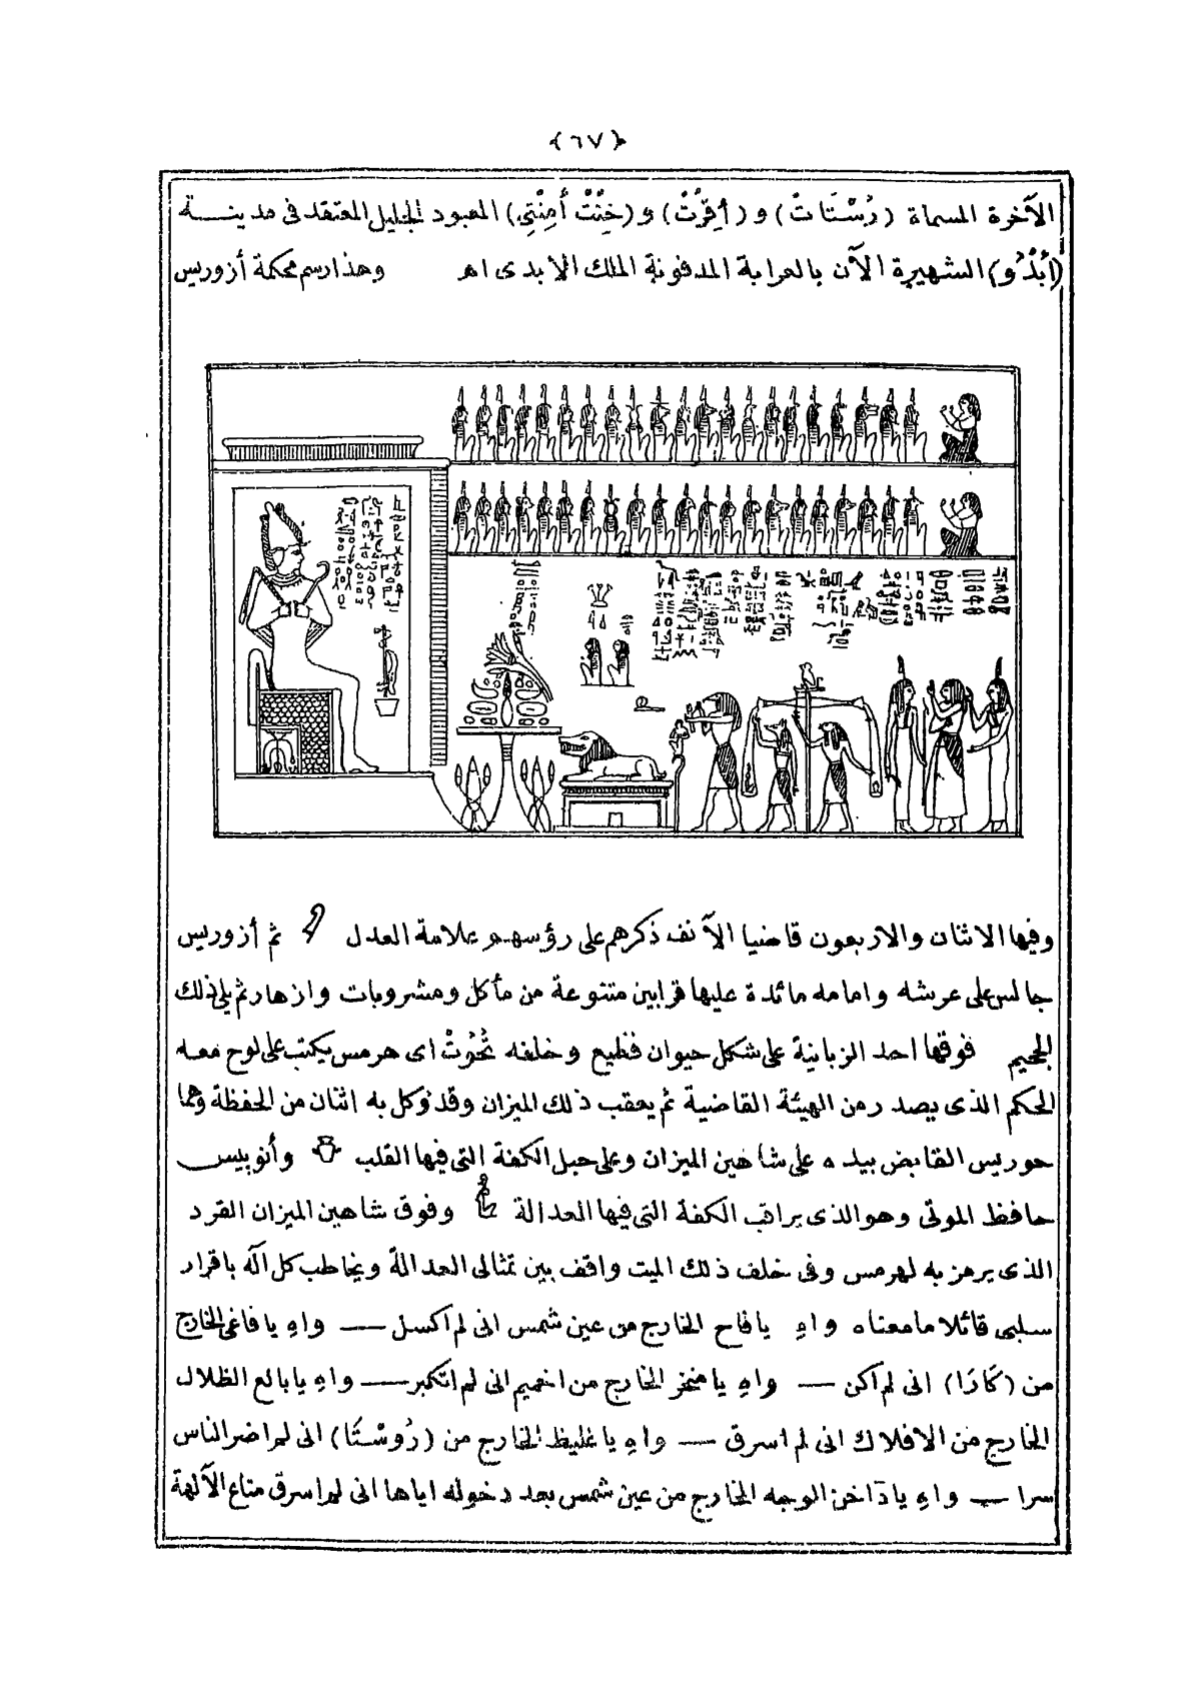 ﴿٦٧﴾
الآخرة المسماة (رُسْتَاتْ) و (أَقِرْتْ) و (خِنْتْ أَمِنْتِى) المعبود الجليل المعتقد فى مدينة
(أَبْدُو) الشهيرة الآن بالعرابة المدفونة الملك الابدى اه وهذا رسم محكمة أزوريس
وفيها الاثنان والاربعون قاضيا الآنف ذكرهم على رؤسهم علامة العدل ثم أزوريس
جالس على عرشه وامامه مائدة عليها قرابين متنوعة من مأكل ومشروبات وازهار ثم يلى ذلك
الجحيم فوقها احد الزبانية على شكل حيوان فظيع وخلفه تُحُوْتْ اى هرمس يكتب على لوح معه
الحكم الذى يصدر من الهيئة القاضية ثم يعقب ذلك الميزان وقد توكل به اثنان من الحفظة وهما
حوريس القابض بيده على شاهين الميزان وعلى حبل الكفة التى فيها القلب وأنوبيس
حافظ الموتى وهو الذى يراقب الكفة التى فيها العدالة وفوق شاهين الميزان القرد
الذى يرمز به لهرمس وفى خلف ذلك الميت واقف بين تمثالى العدالة ويخاطب كل آله باقرار
سلبى قائلا ما معناه واهِ يا فاح الخارج من عين شمس انى لم اكسل — واهِ يا فاغى الخارج
من (كَارَا) انى لم اكن — واهِ يا منخر الخارج من اخميم انى لم اتكبر — واهِ يا بالع الظلال
الخارج من الافلاك انى لم اسرق — واهِ يا غليظ الخارج من (رُوسْتَا) انى لم اضر الناس
سرا — واهِ يا آخذ الوجه الخارج من عين شمس بعد دخوله اياها انى لم اسرق متاع الآلهة